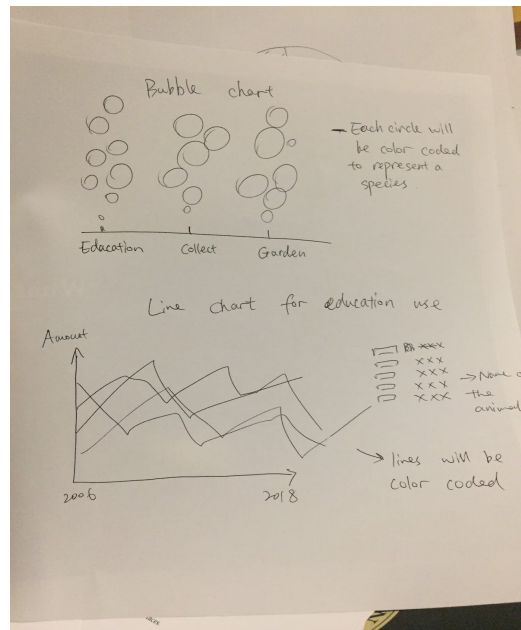 Bubble chart
- Each circle will
be color coded
to represent a
species.
Education
Collect
Garden
Line chart for education use
Amount
xxx
xxx
xxx
xxx
xxx
→ Name o
the
animal
→ lines will be
color coded
2006
2018